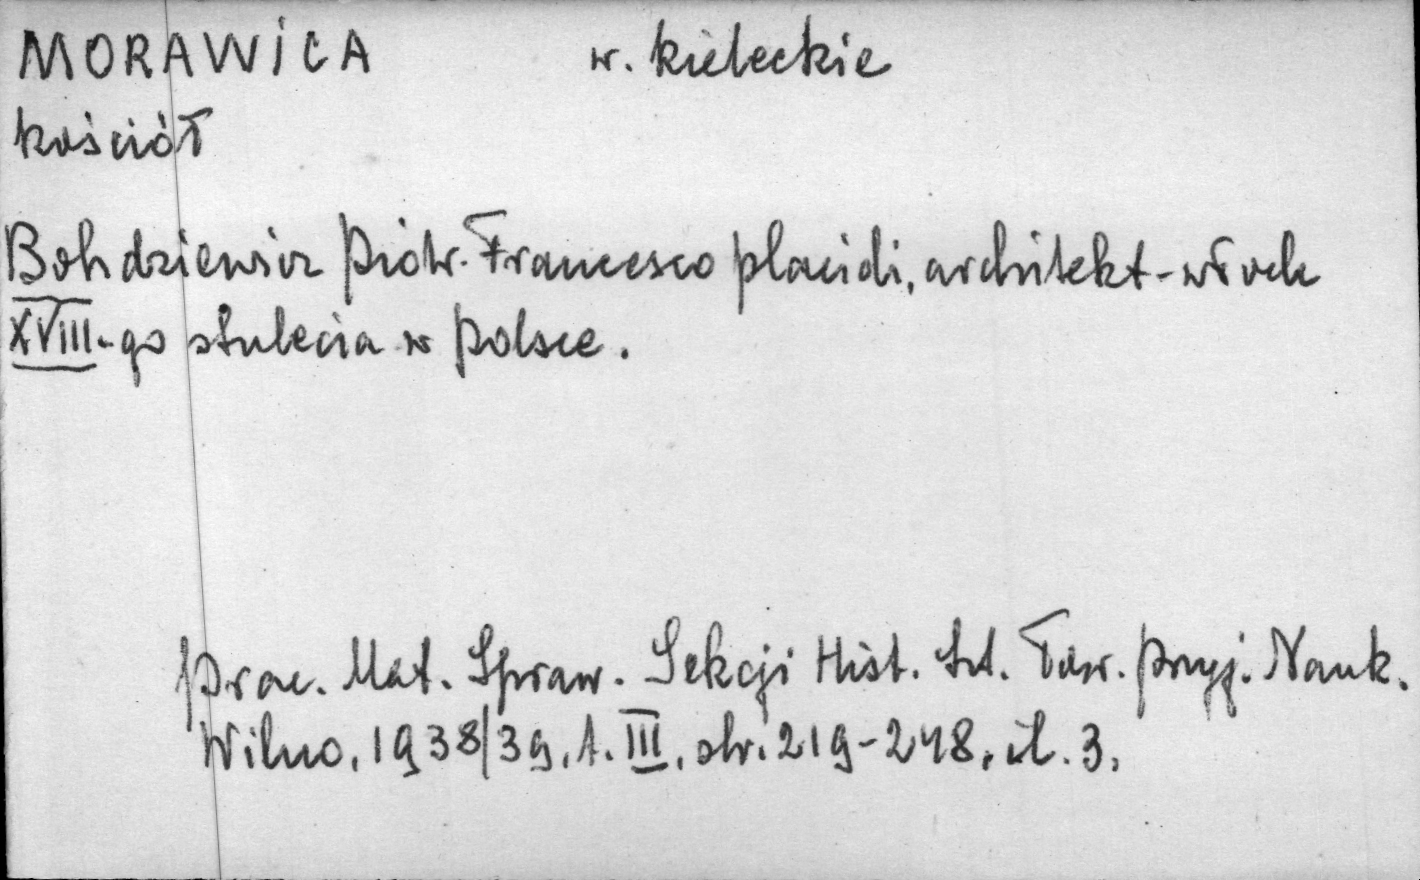 MORAWICA w. kieleckie
kościół
Bohdziewicz Piotr. Francesco Placidi, architekt-włoch
XVIII-go stulecia w Polsce.
Prac. Mat. Spraw. Sekcji Hist. Szt. Tow. Przyj. Nauk.
Wilno, 1938/39, t. III, str. 219-248, il. 3.